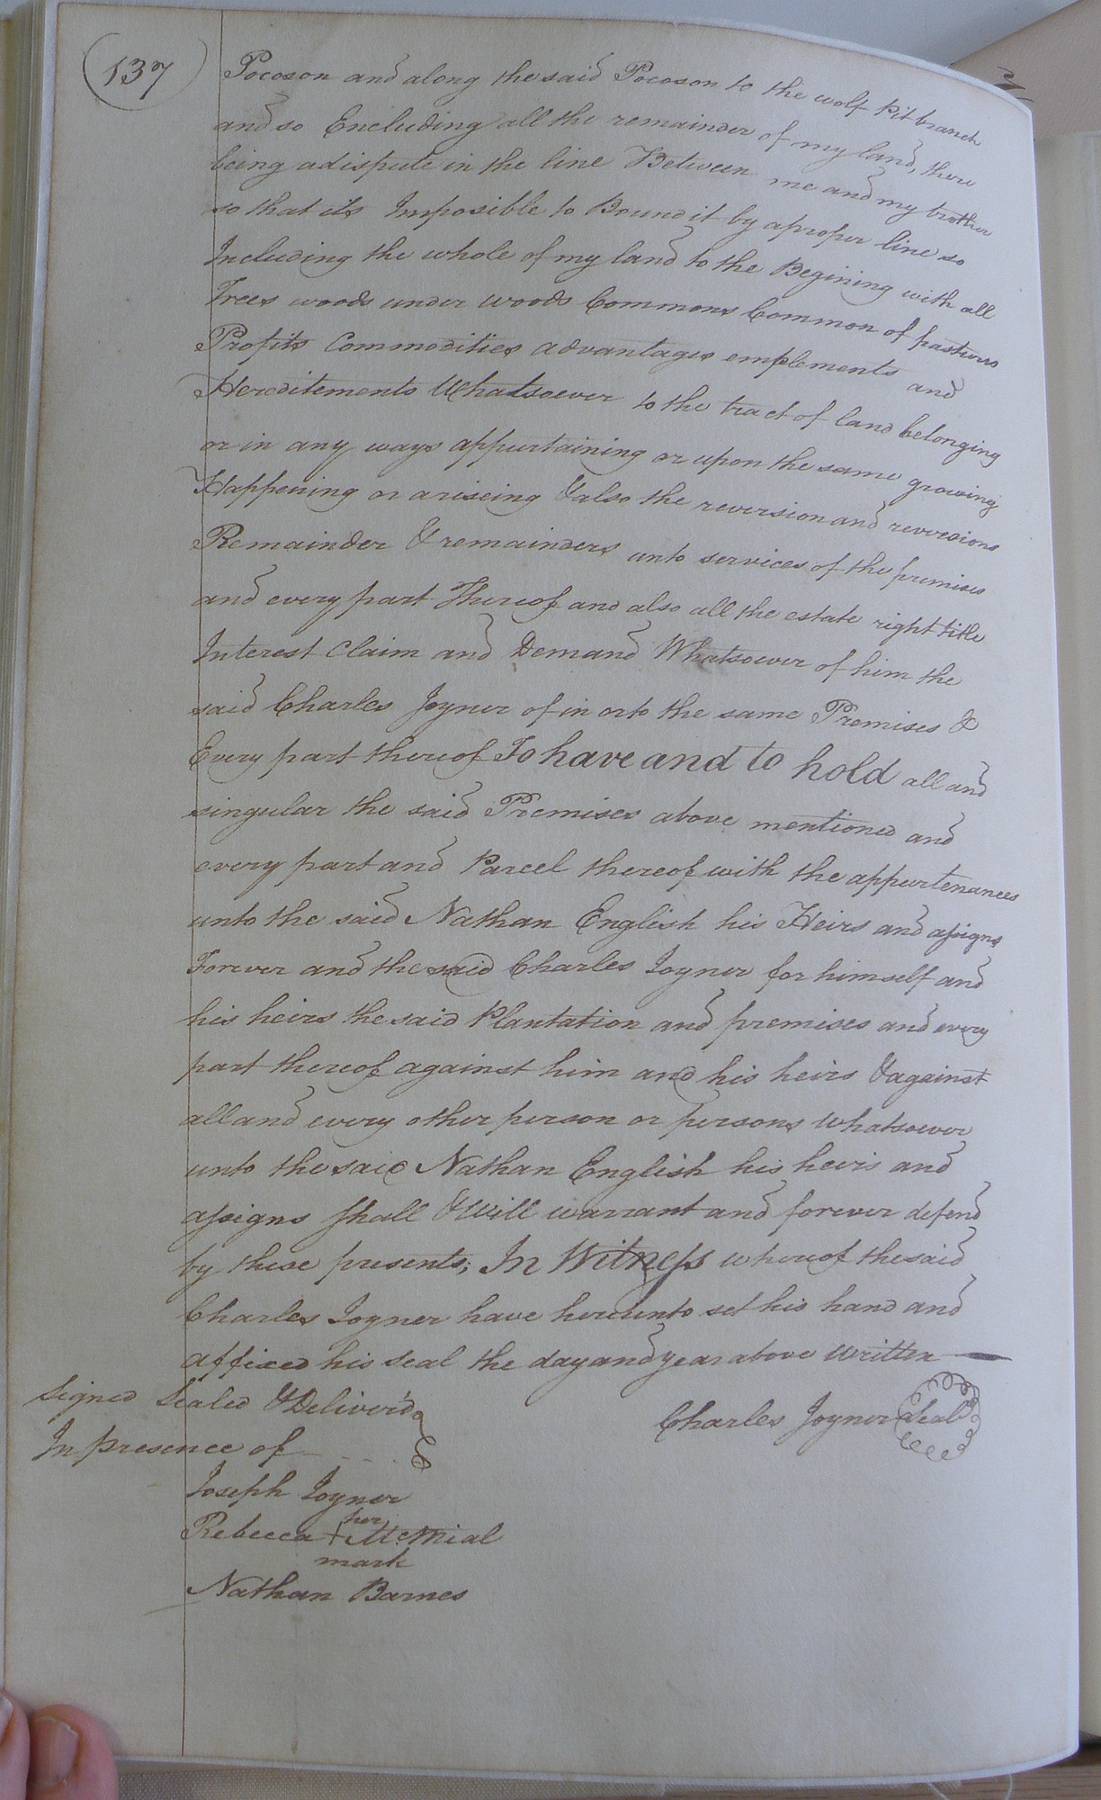 137
Pocoson and along the said Pocoson to the wolf Pit branch
and so Encluding all the remainder of my land, there
being a dispute in the line Between me and my brother
so that its Imposible to Bound it by a proper line so
Including the whole of my land to the Begining with all
Trees woods under woods Commons Common of pastures
Profits Commodities advantages emplements and
Hereditements Whatsoever to the tract of land belonging
or in any ways appurtaining or upon the same growing
Happening or ariseing & also the reversion and reversions
Remainder & remainders unto services of the premises
and every part Thereof and also all the estate right title
Interest Claim and Demand Whatsoever of him the
said Charles Joyner of in or to the same Premises &
Every part thereof To have and to hold all and
singular the said Premises above mentioned and
every part and Parcel thereof with the appurtenances
unto the said Nathan English his Heirs and assigns
Forever and the said Charles Joyner for himself and
his heirs the said Plantation and premises and every
part thereof against him and his heirs & against
all and every other person or persons whatsoever
unto the said Nathan English his heirs and
assigns shall & Will warrant and forever defend
by these presents; In Witness whereof the said
Charles Joyner have hereunto set his hand and
affixed his seal the day and year above written
Signed Sealed & Deliver'd
In presence of
Charles Joyner Seal
Joseph Joyner
her
Rebecca + McMial
mark
Nathan Barnes